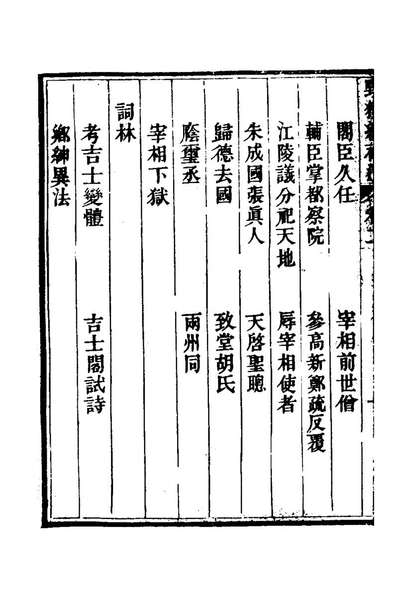 閣臣久任　宰相前世僧
輔臣掌都察院　參高新鄭疏反覆
江陵議分祀天地　辱宰相使者
朱成國張眞人　天啓聖聰
歸德去國　致堂胡氏
廕璽丞　兩州同
宰相下獄
詞林
考吉士變體　吉士閣試詩
鄉紳異法